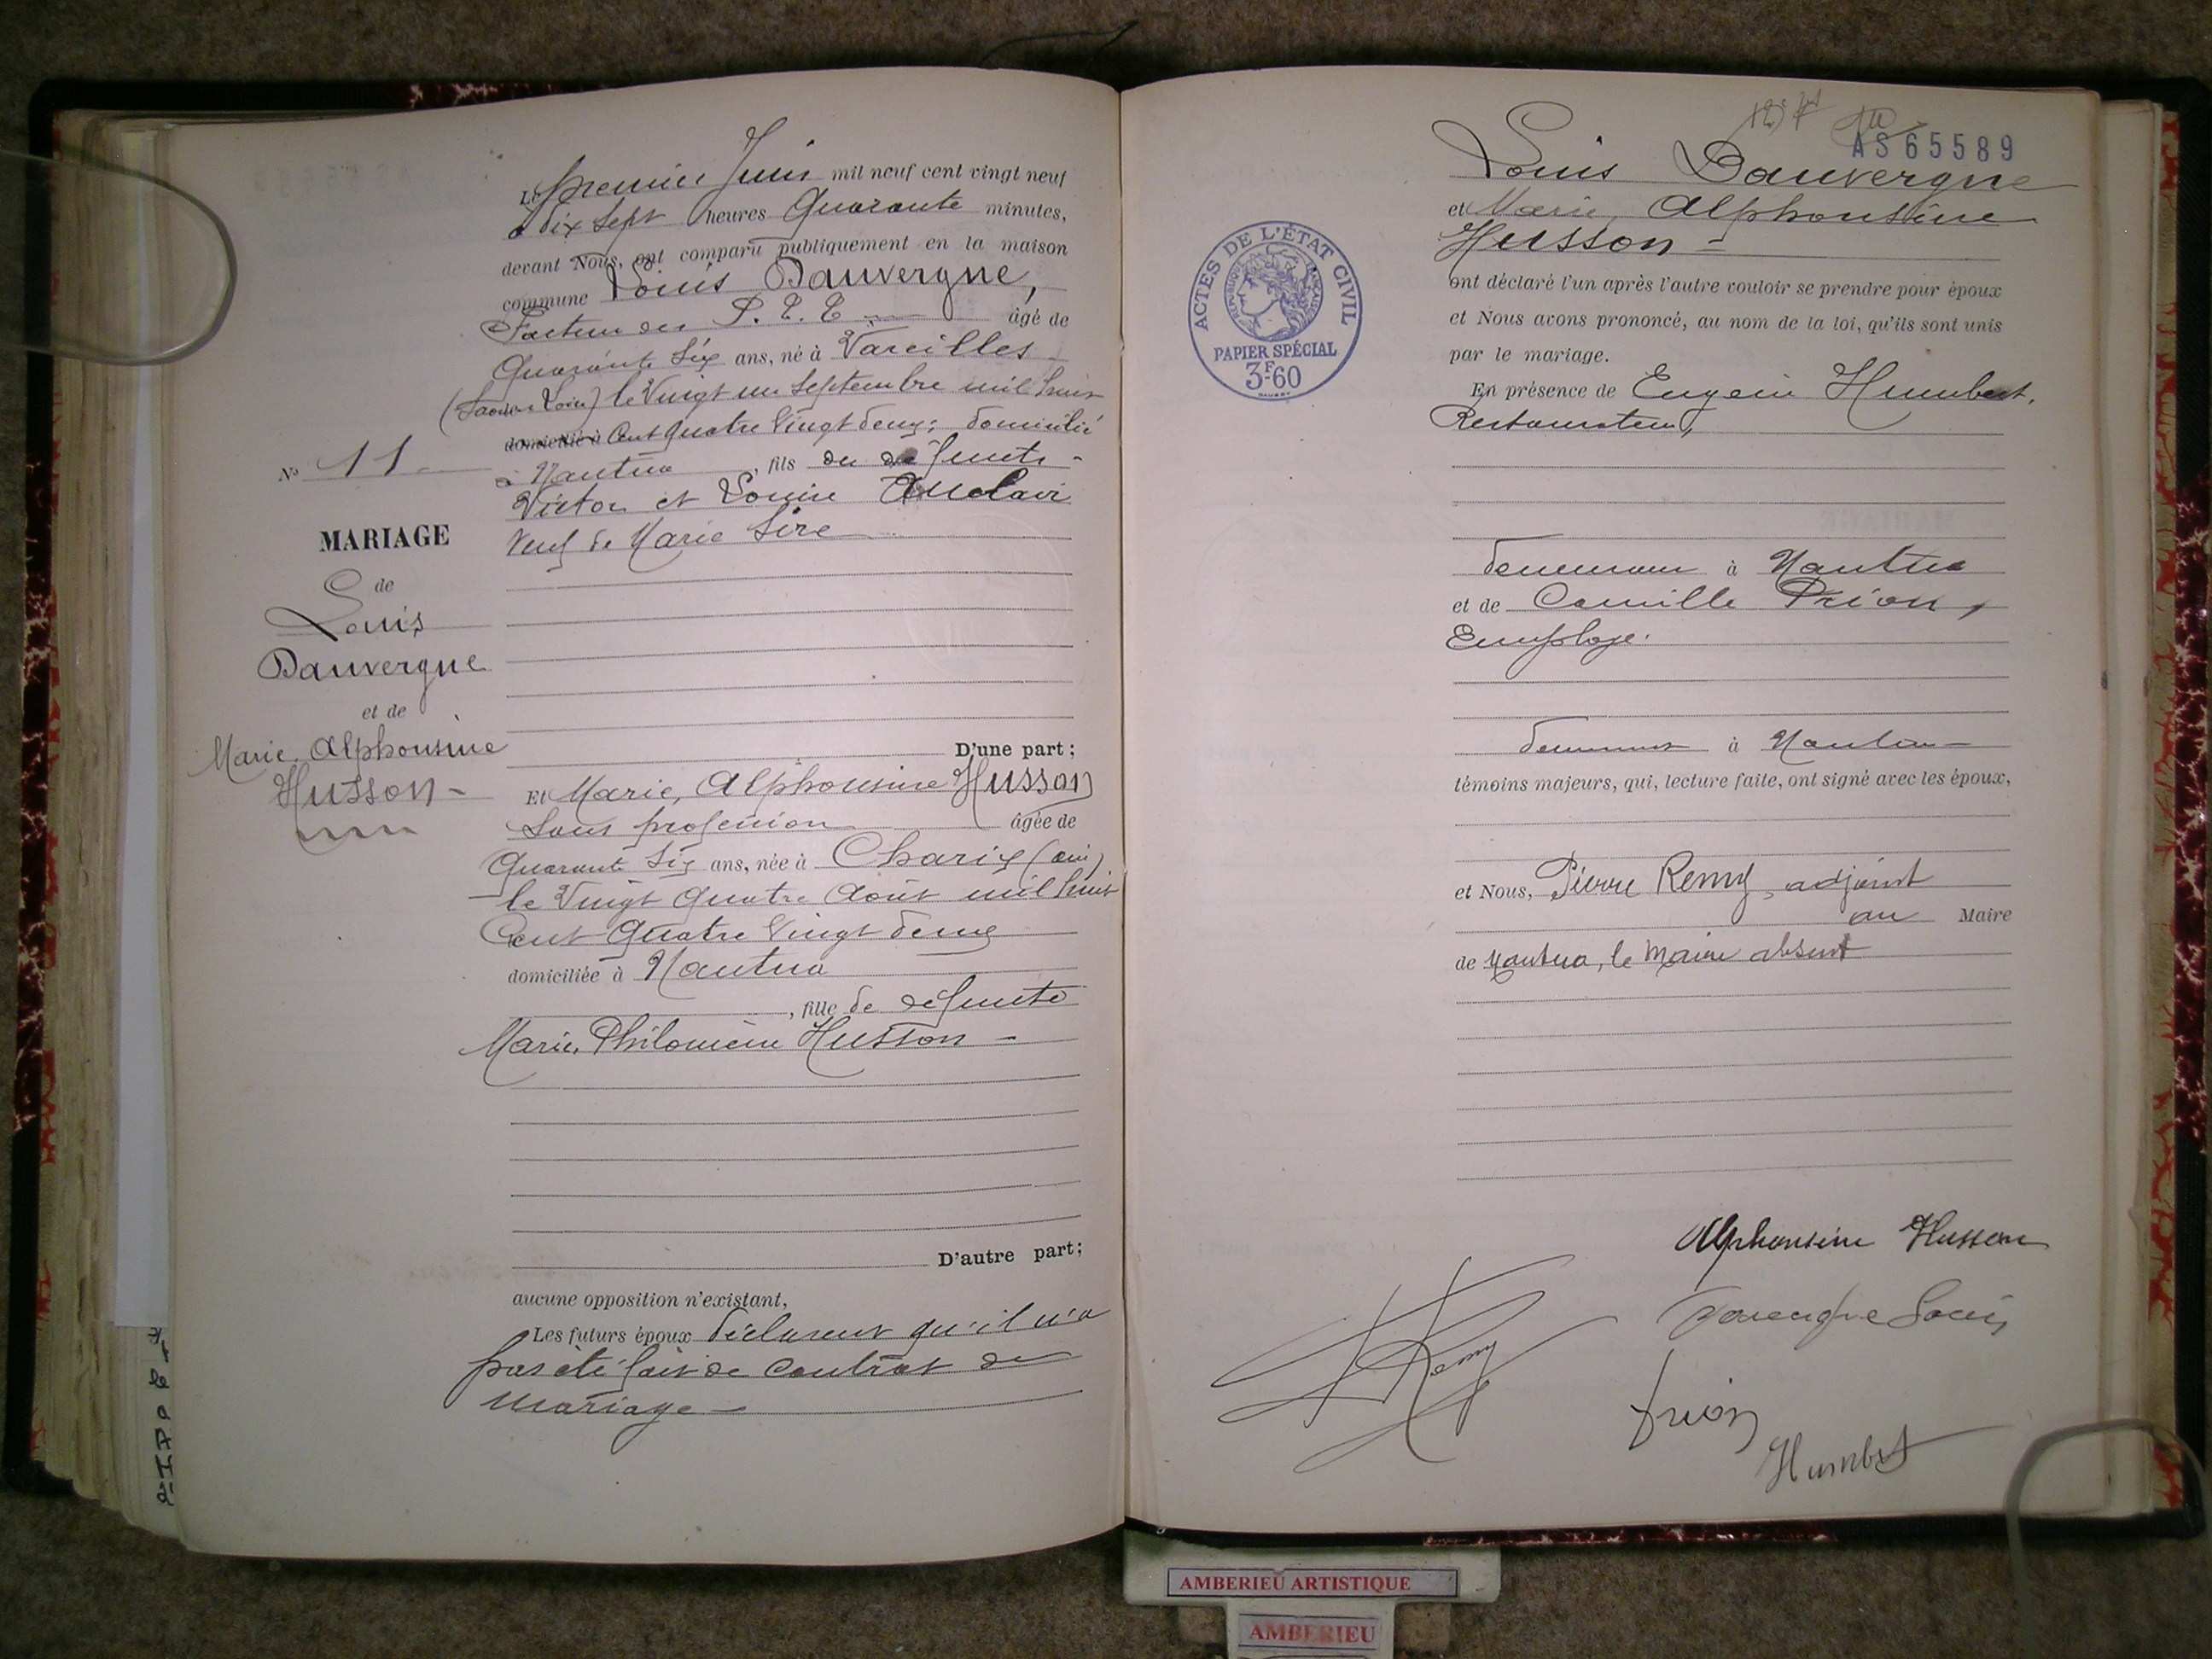 Le premier Juin mil neuf cent vingt neuf
à dix sept heures Quarante minutes,
devant Nous, ont comparu publiquement en la maison
commune Louis Dauvergne,
Facteur des P. T. T. âgé de
Quarante Six ans, né à Vareilles
(Saône & Loire) le Vingt un Septembre mil huit
domicilié à Cent quatre Vingt deux; domicilié
à Nantua, fils de défunts
Victor et Louise Auclair
Veuf de Marie Sire
D'une part;
Nº 11
MARIAGE
de
Louis
Dauvergne
et de
Marie, Alphonsine
Husson
Et Marie, Alphonsine Husson
Sans profession âgée de
Quarante Six ans, née à Charix (Ain)
le Vingt Quatre Août mil huit
Cent Quatre Vingt deux
domiciliée à Nantua
, fille de défunte
Marie, Philomène Husson
D'autre part;
aucune opposition n'existant,
Les futurs époux déclarent qu'il n'a
pas été fait de contrat de
mariage
AS65589
Louis Dauvergne
et Marie, Alphonsine
Husson
ont déclaré l'un après l'autre vouloir se prendre pour époux
et Nous avons prononcé, au nom de la loi, qu'ils sont unis
par le mariage.
En présence de Eugène Humbert,
Restaurateur,
demeurant à Nantua
et de Camille Prion,
Employé.
demeurant à Nantua
témoins majeurs, qui, lecture faite, ont signé avec les époux,
et Nous, Pierre Remy, adjoint
au Maire
de Nantua, le Maire absent
ACTES DE L'ÉTAT CIVIL
RÉPUBLIQUE FRANÇAISE
PAPIER SPÉCIAL
3F60
Alphonsine Husson
Dauvergne Louis
Remy
Prion
Humbert
AMBERIEU ARTISTIQUE
AMBERIEU